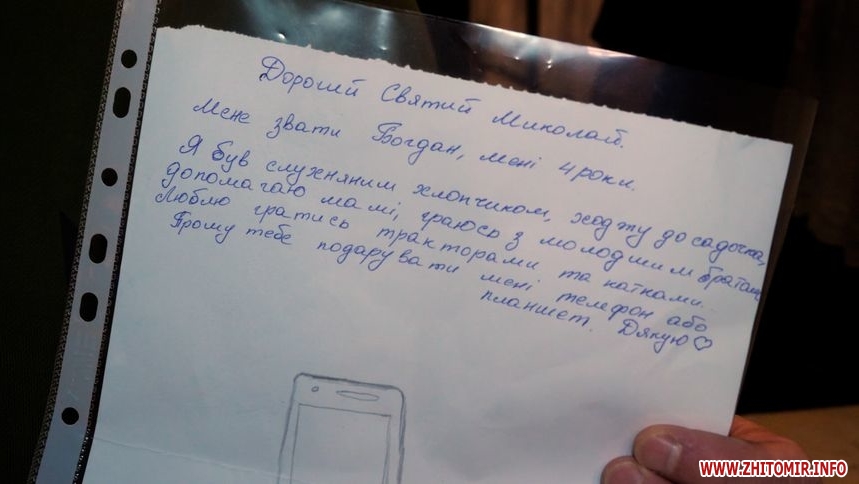 Дорогий Святий Миколай.
Мене звати Богдан, мені 4 роки.
Я був слухняним хлопчиком, ходжу до садочка,
допомагаю мамі, граюсь з молодшим братом
Люблю гратись тракторами та катками.
Прошу тебе подарувати мені телефон або
планшет. Дякую♡
WWW.ZHITOMIR.INFO